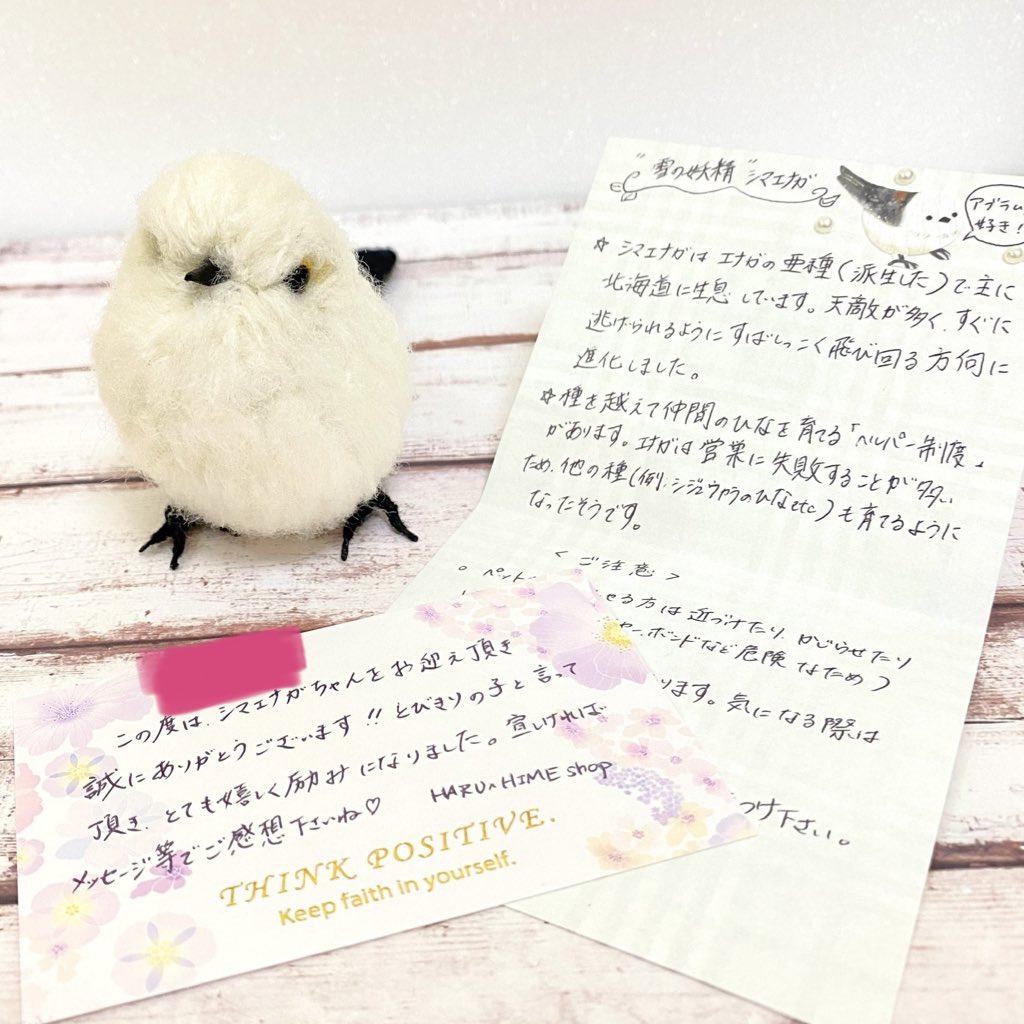 "雪の妖精" シマエナガ
アブラムシ
好き!
☆ シマエナガは エナガの亜種(派生した)で主に
北海道に生息しています。天敵が多く、すぐに
逃げられるように すばしっこく飛び回る方向に
進化しました。
☆ 種を越えて仲間のひなを育てる「ヘルパー制度」
があります。エナガは営巣に失敗することが多い
ため、他の種(例.シジュウカラのひなetc)も育てるように
なったそうです。
<ご注意>
。ペット
せる方は近づけたり、かじらせたり
ボンドなど危険なため)
ります。気になる際は
つけ下さい。
この度は、シマエナガちゃんをお迎え頂き
誠にありがとうございます!! とびきりの子と言って
頂き、とても嬉しく励みになりました。宜しければ
メッセージ等でご感想下さいね♡ HARU∧HIME shop
THINK POSITIVE.
Keep faith in yourself.